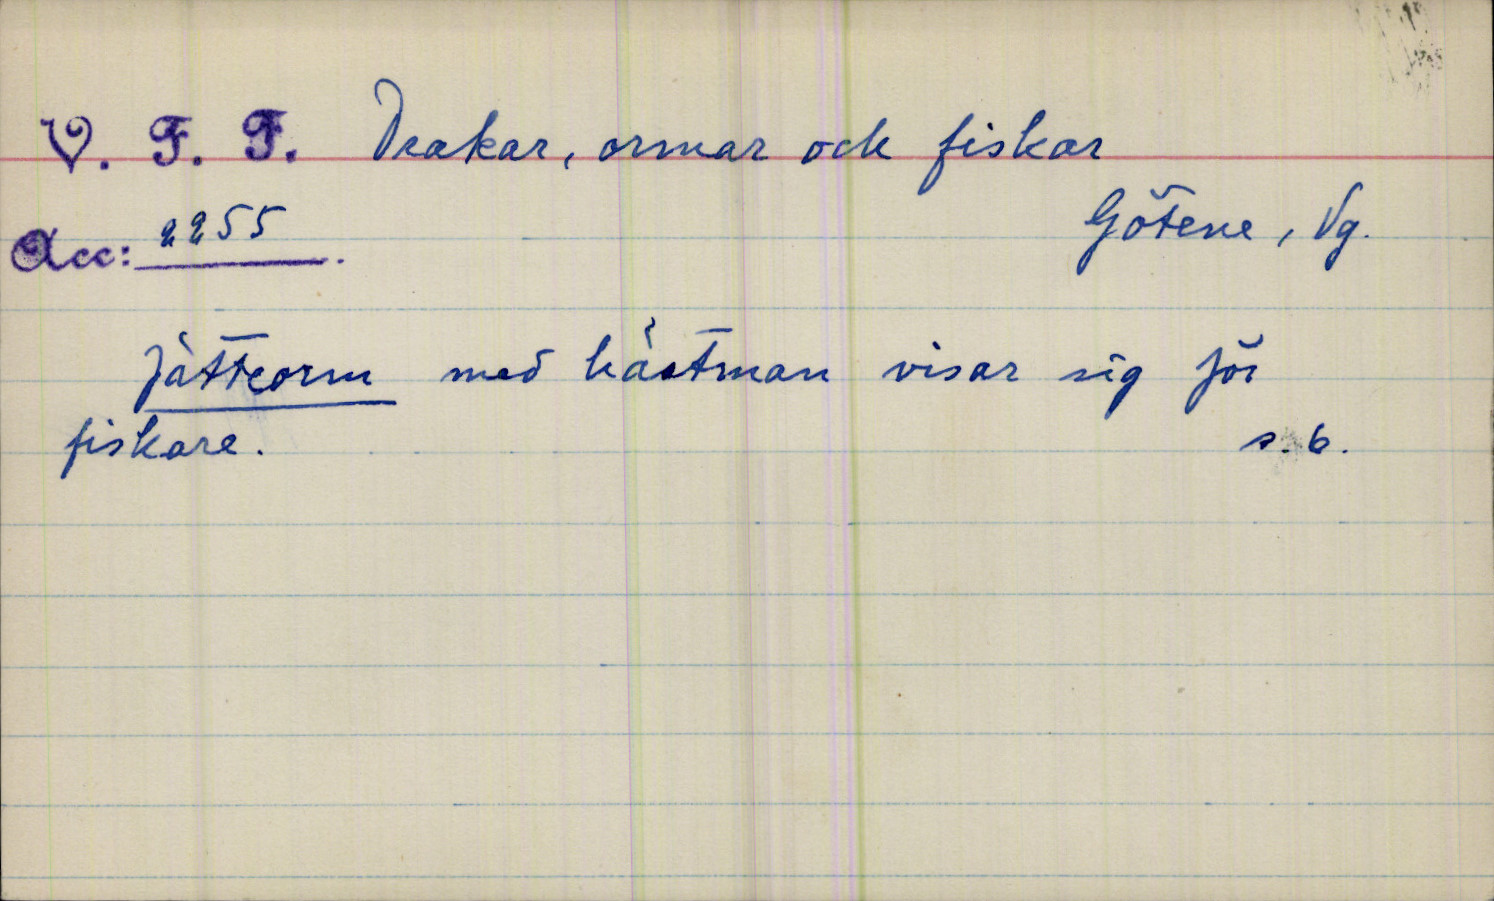 V. F. F. Drakar, ormar och fiskar
Götene, Vg.
Acc: 2255.
Jätteorm med hästman visar sig för
fiskare. s. 6.